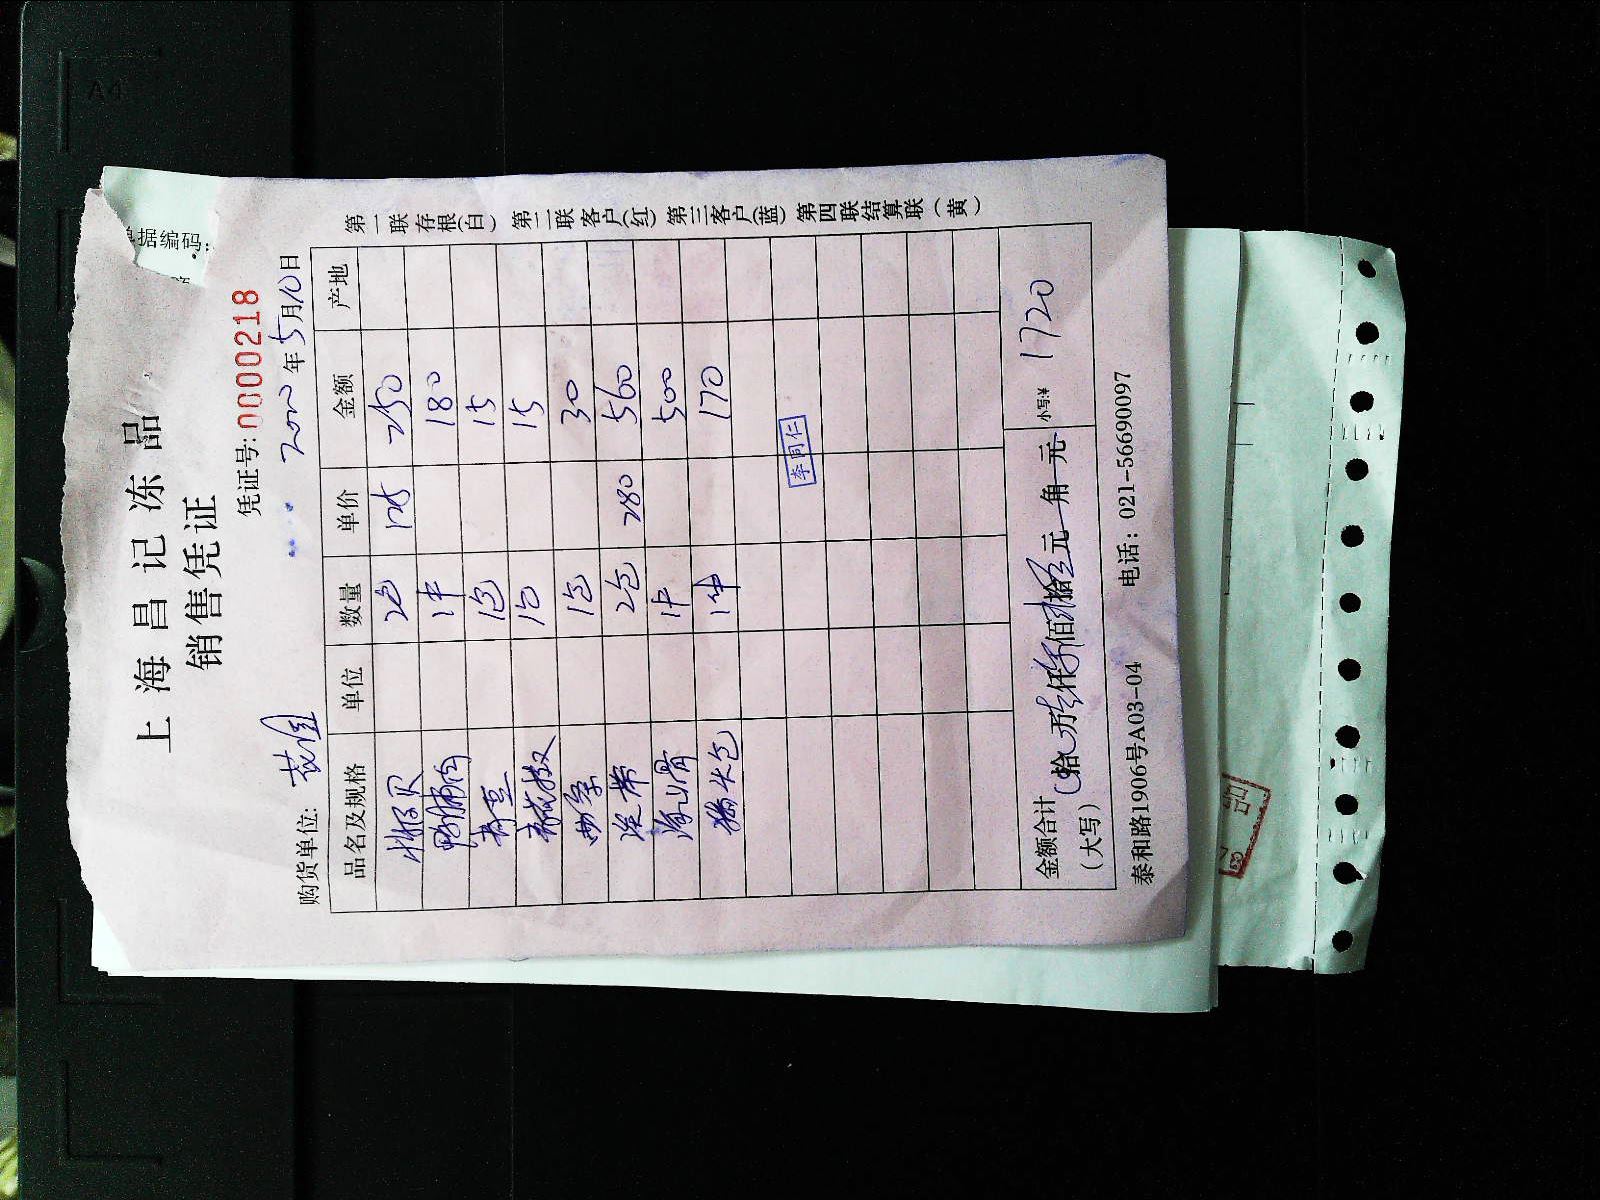 据编码:
上海昌记冻品
销售凭证
凭证号: 0000218
购货单位: 花园
年5月10日
品名及规格 单位 数量 单价 金额 产地
2包 125 250
鸭脯肉 1件 180
青豆 1包 15
1包 15
西芹 1包 30
2包 280 560
1件 500
1件 170
李同仁
金额合计
(大写)
拾 万 仟 佰 拾 元 角 元
小写:¥ 1720
泰和路1906号A03-04 电话: 021-56690097
第一联存根(白) 第二联客户(红) 第三客户(蓝) 第四联结算联(黄)
A4